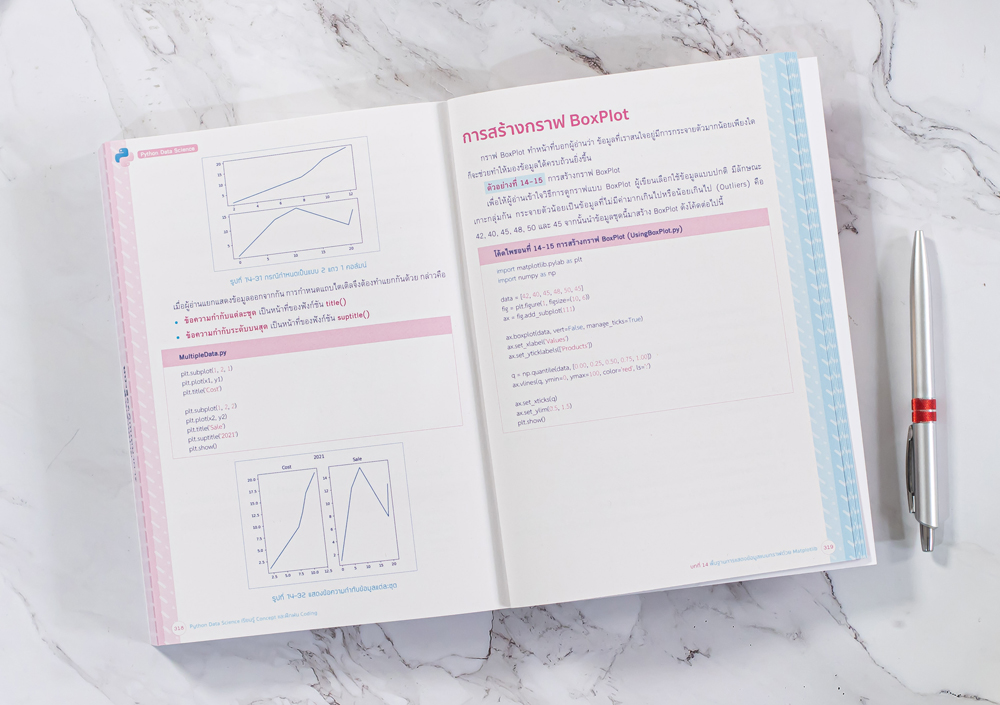 Python Data Science
20
15
10
5
2
4
6
8
10
12
15
10
5
0
5
10
15
20
รูปที่ 14-31 กรณีกำหนดเป็นแบบ 2 แถว 1 คอลัมน์
เมื่อผู้อ่านแยกแสดงข้อมูลออกจากกัน การกำหนดแถบไตเติลจึงต้องทำแยกกันด้วย กล่าวคือ
• ข้อความกำกับแต่ละชุด เป็นหน้าที่ของฟังก์ชัน title()
• ข้อความกำกับระดับบนสุด เป็นหน้าที่ของฟังก์ชัน suptitle()
MultipleData.py
plt.subplot(1, 2, 1)
plt.plot(x1, y1)
plt.title('Cost')
plt.subplot(1, 2, 2)
plt.plot(x2, y2)
plt.title('Sale')
plt.suptitle('2021')
plt.show()
2021
Cost
Sale
20.0
17.5
15.0
12.5
10.0
7.5
5.0
2.5
2.5 5.0 7.5 10.0 12.5
14
12
10
8
6
4
2
0 5 10 15 20
รูปที่ 14-32 แสดงข้อความกำกับข้อมูลแต่ละชุด
318
Python Data Science เรียนรู้ Concept และฝึกฝน Coding
การสร้างกราฟ BoxPlot
กราฟ BoxPlot ทำหน้าที่บอกผู้อ่านว่า ข้อมูลที่เราสนใจอยู่มีการกระจายตัวมากน้อยเพียงใด
ก็จะช่วยทำให้มองข้อมูลได้ครบถ้วนยิ่งขึ้น
ตัวอย่างที่ 14-15 การสร้างกราฟ BoxPlot
เพื่อให้ผู้อ่านเข้าใจวิธีการดูกราฟแบบ BoxPlot ผู้เขียนเลือกใช้ข้อมูลแบบปกติ มีลักษณะ
เกาะกลุ่มกัน กระจายตัวน้อยเป็นข้อมูลที่ไม่มีค่ามากเกินไปหรือน้อยเกินไป (Outliers) คือ
42, 40, 45, 48, 50 และ 45 จากนั้นนำข้อมูลชุดนี้มาสร้าง BoxPlot ดังโค้ดต่อไปนี้
โค้ดไพธอนที่ 14-15 การสร้างกราฟ BoxPlot (UsingBoxPlot.py)
import matplotlib.pylab as plt
import numpy as np
data = [42, 40, 45, 48, 50, 45]
fig = plt.figure(1, figsize=(10, 6))
ax = fig.add_subplot(111)
ax.boxplot(data, vert=False, manage_ticks=True)
ax.set_xlabel('Values')
ax.set_yticklabels(['Products'])
q = np.quantile(data, [0.00, 0.25, 0.50, 0.75, 1.00])
ax.vlines(q, ymin=0, ymax=100, color='red', ls=':')
ax.set_xticks(q)
ax.set_ylim(0.5, 1.5)
plt.show()
บทที่ 14 พื้นฐานการแสดงข้อมูลแบบกราฟด้วย Matplotlib
319